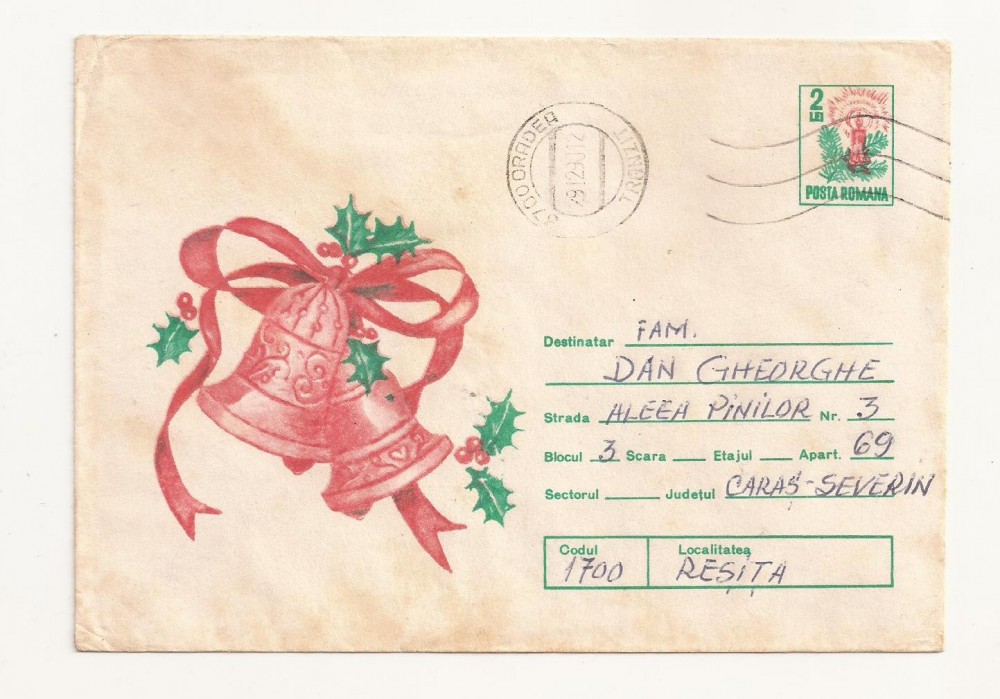 3700 ORADEA
TRANZIT
29.12.90.12
2
LEI
POSTA ROMANA
Destinatar FAM.
DAN GHEORGHE
Strada ALEEA PINILOR Nr. 3
Blocul 3 Scara Etajul Apart. 69
Sectorul Județul CARAȘ-SEVERIN
Codul Localitatea
1700 REȘIȚA